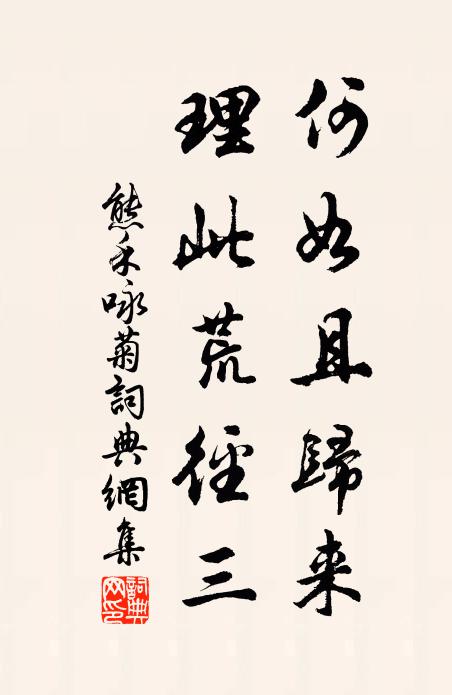 何如且歸来
理此荒徑三
熊禾咏菊詞典網集
詞典网印